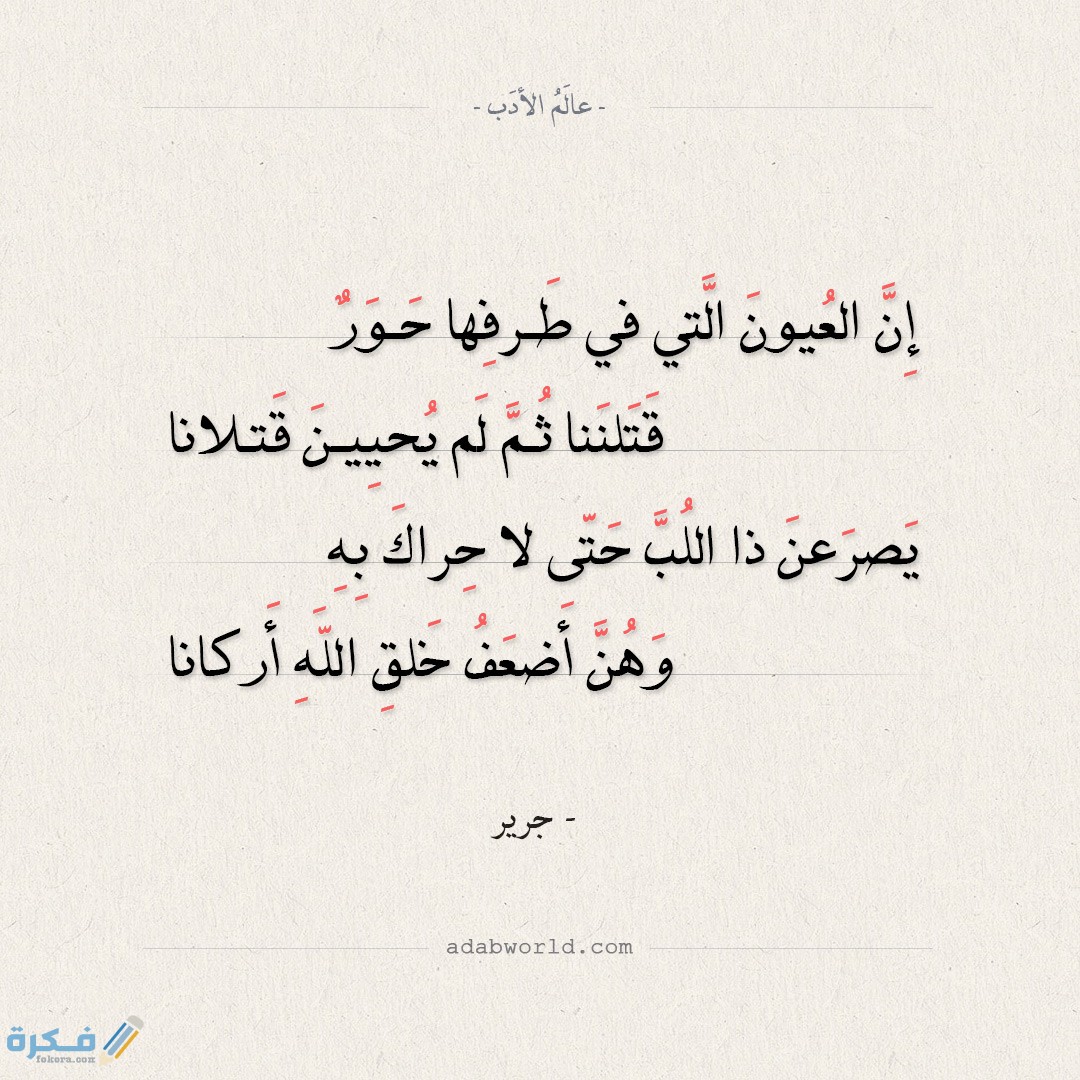 - عالَمُ الأدَب -
إِنَّ العُيونَ الَّتي في طَـرفِها حَـوَرٌ
قَتَلنَنا ثُـمَّ لَم يُحيِيـنَ قَتـلانا
يَصرَعنَ ذا اللُبَّ حَتّى لا حِراكَ بِهِ
وَهُنَّ أَضعَفُ خَلقِ اللَهِ أَركانا
- جرير
adabworld.com
فـكرة
fokera.com